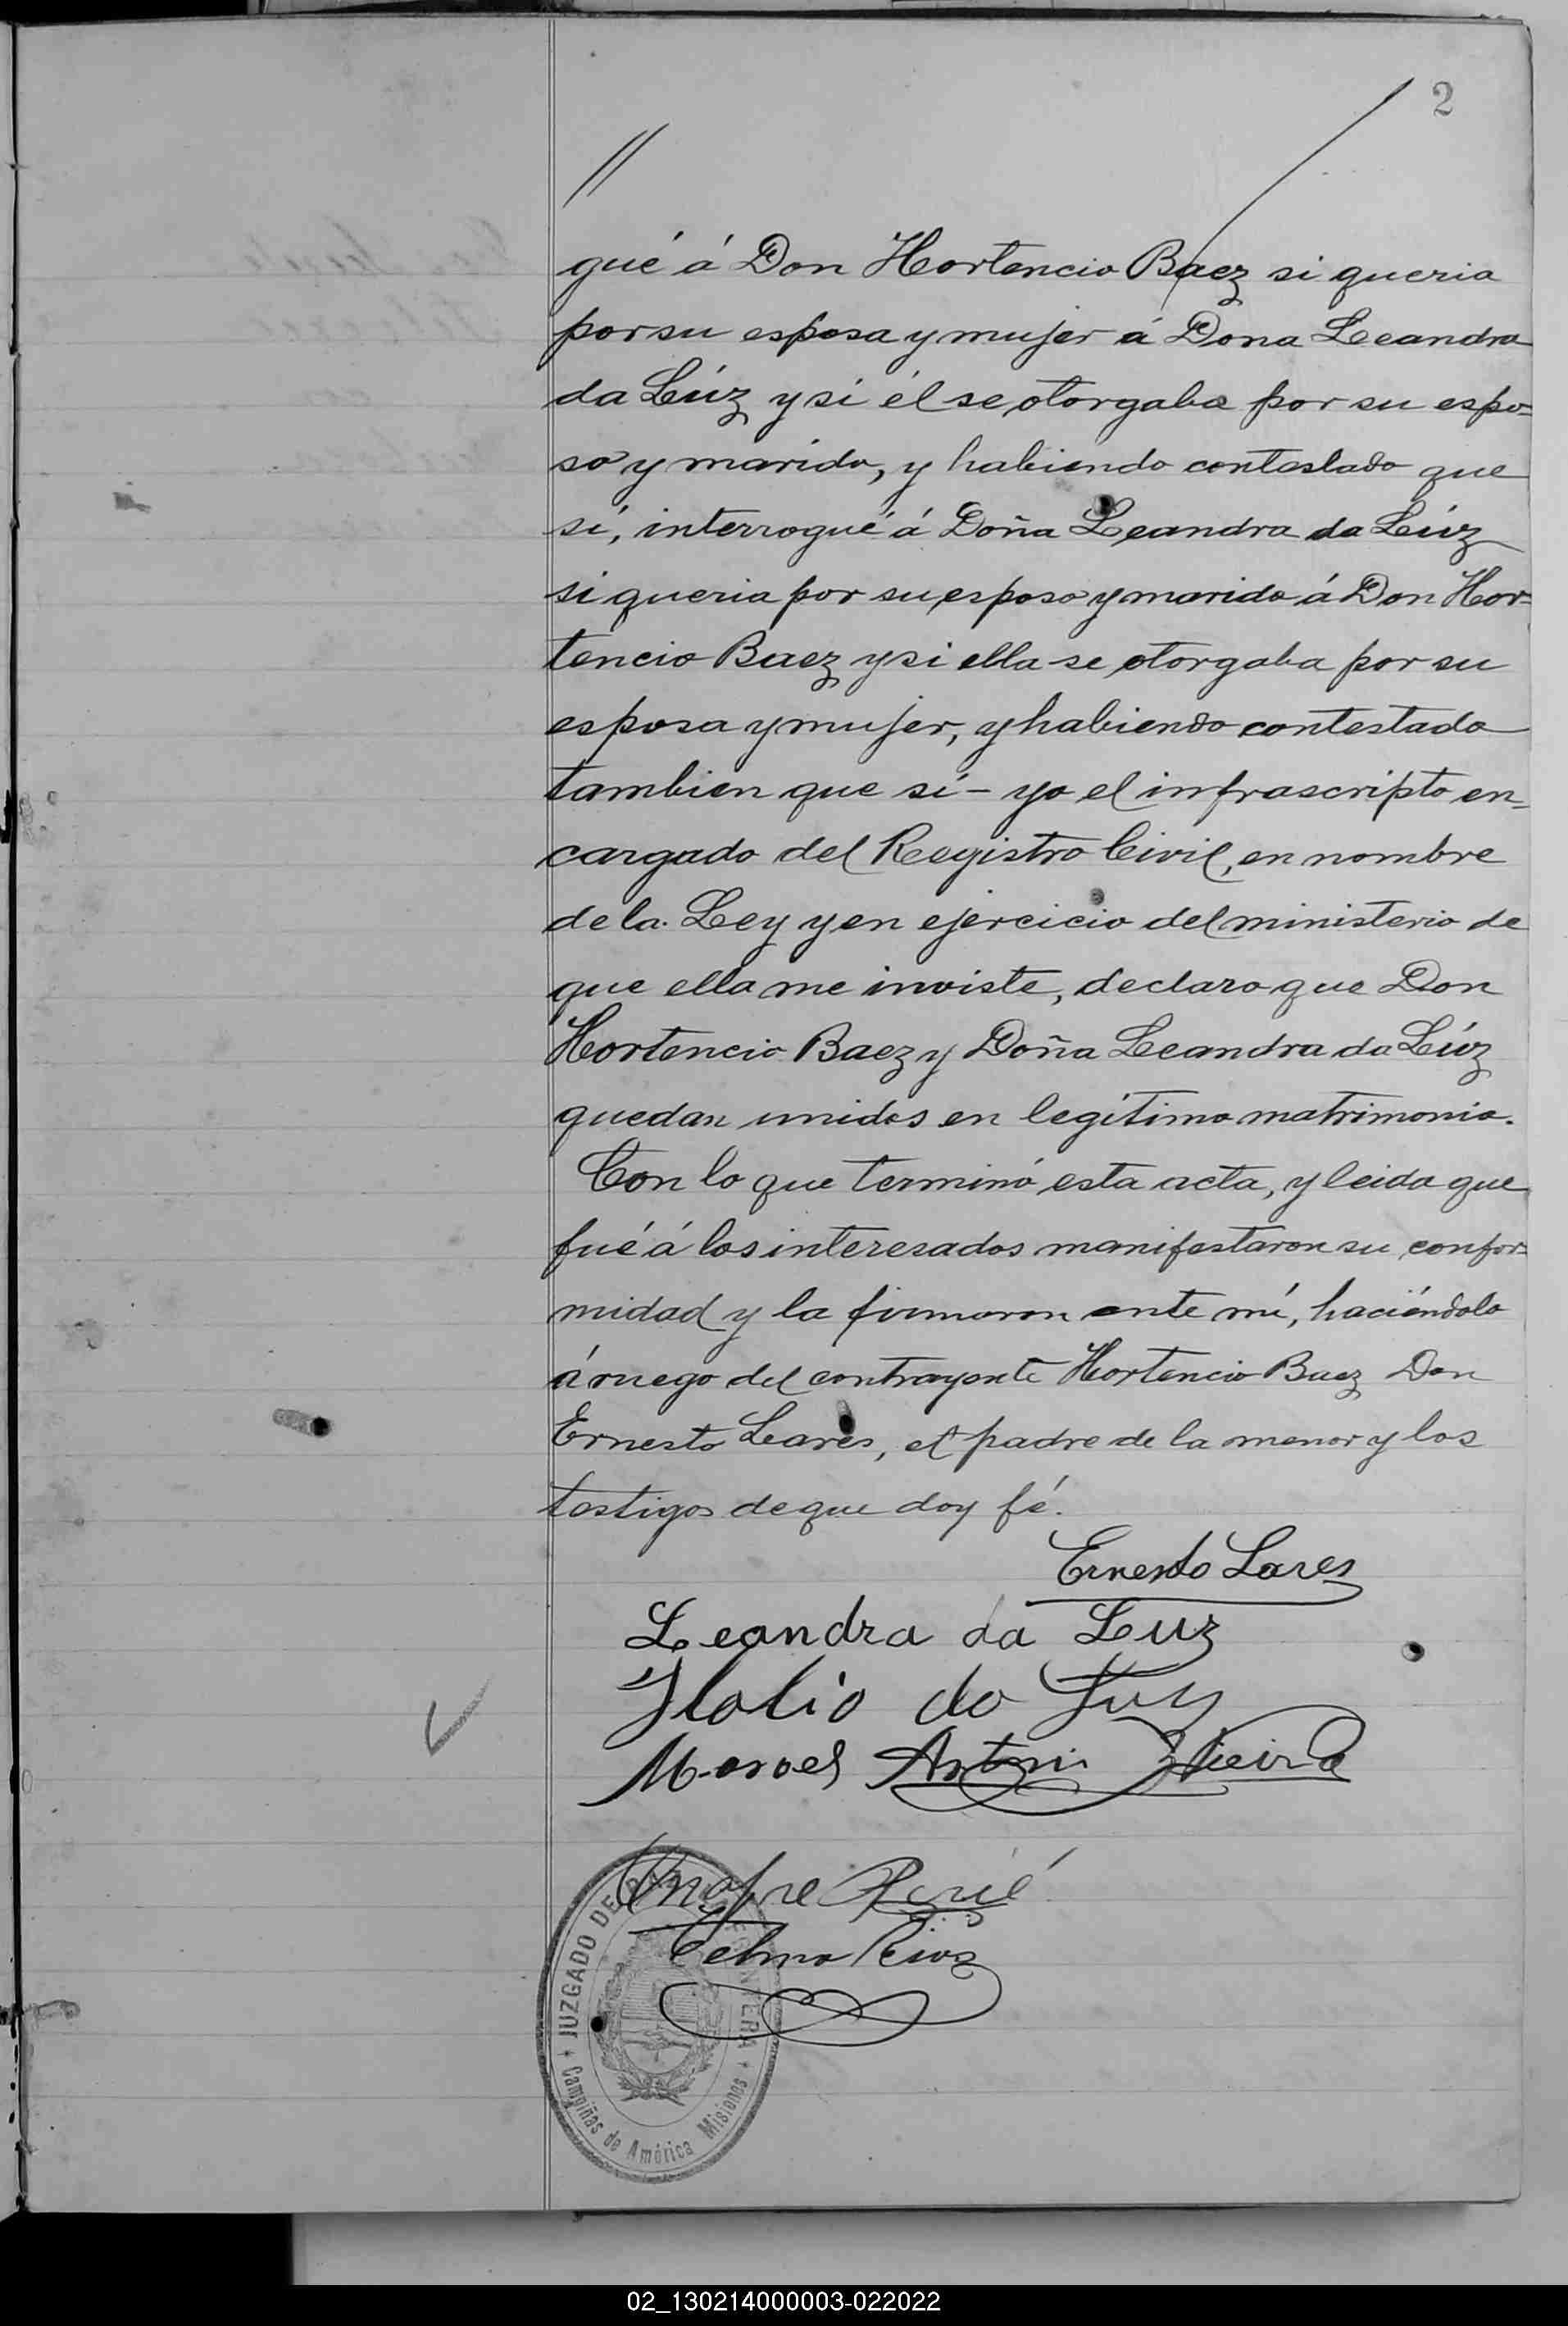 2
//
gué á Don Hortencio Baez si queria
por su esposa y mujer á Dona Leandra
da Lúz y si él se otorgaba por su espo=
so y marido, y habiendo contestado que
sí, interrogué á Doña Leandra da Lúz
si queria por su esposo y marido á Don Hor=
tencio Baez y si ella se otorgaba por su
esposa y mujer, y habiendo contestado
tambien que sí - yo el infrascripto en=
cargado del Registro Civil, en nombre
de la Ley y en ejercicio del ministerio de
que ella me inviste, declaro que Don
Hortencio Baez y Doña Leandra da Lúz
quedan unidos en legítimo matrimonio.
Con lo que terminó esta acta, y leida que
fué á los interesados manifestaron su confor=
midad y la firmaron ante mí, haciéndolo
á ruego del contrayente Hortencio Baez Don
Ernesto Lares, el padre de la menor y los
testigos de que doy fé.
Ernesto Lares
Leandra da Luz
da Luz
Manoel Antonio Vieira
Onofre
Telmo Rios
JUZGADO DE PAZ
Campiñas de América Misiones
02_130214000003-022022